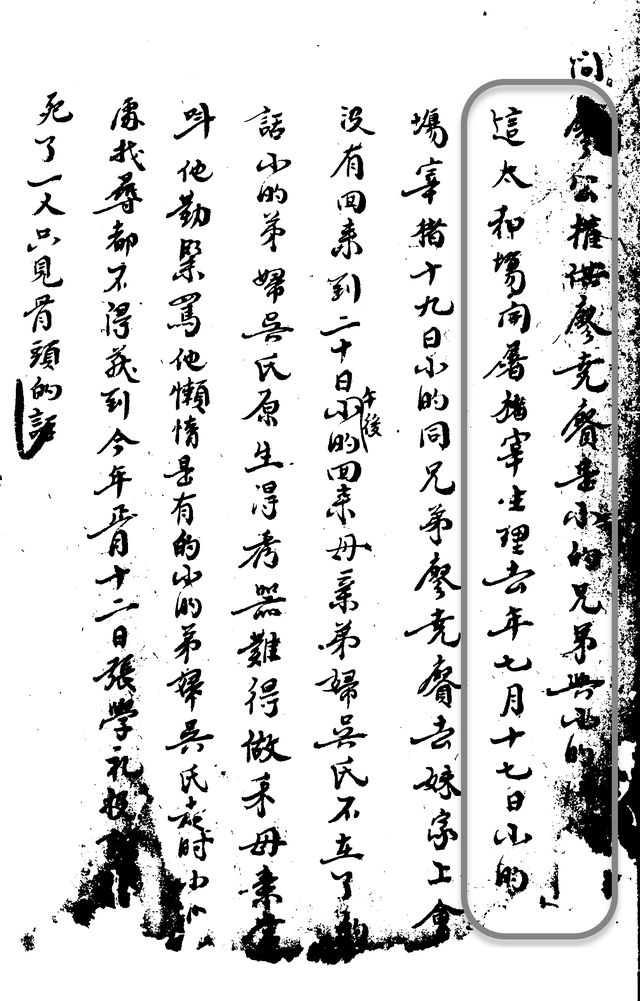 問
廖公權供廖堯賡是小的兄弟與小的
這太和場開屠猪宰生理去年七月十七日小的
場宰猪十九日小的同兄弟廖堯賡去妹家上會
没有回来到二十日小的回来母亲弟婦吳氏不在了
午後
話小的弟婦吳氏原生得考器難得做禾母亲
呌他勤緊罵他懶惰是有的小的弟婦吳氏走時
處找尋都不得获到今年正月十二日張學礼
死了一人只見骨頭的話